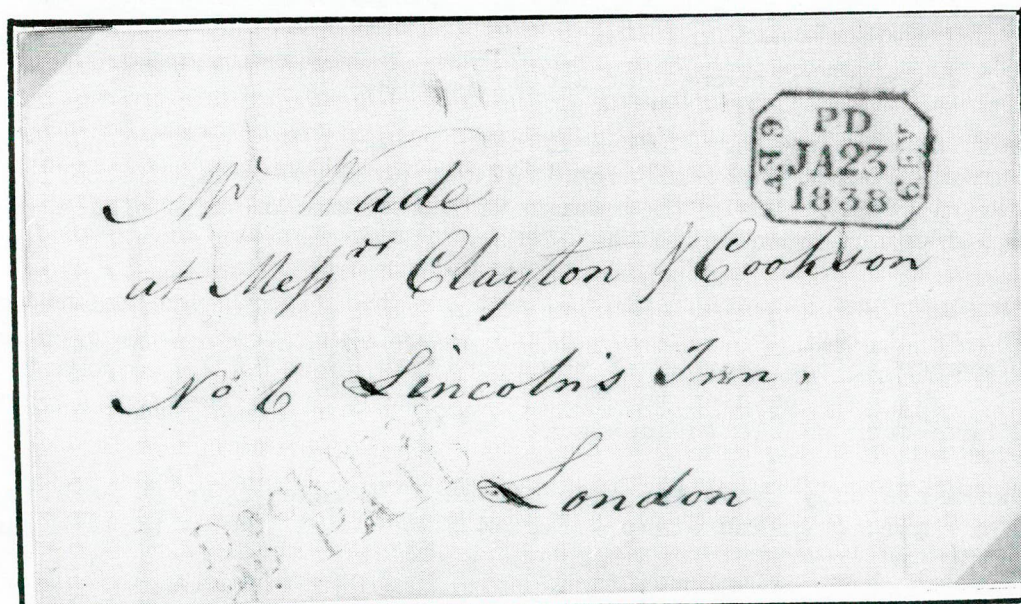 PD
6 EV
JA23
6 EV
1838
Mr Wade
at Messrs Clayton & Cookson
No 6 Lincoln's Inn,
London
PAID